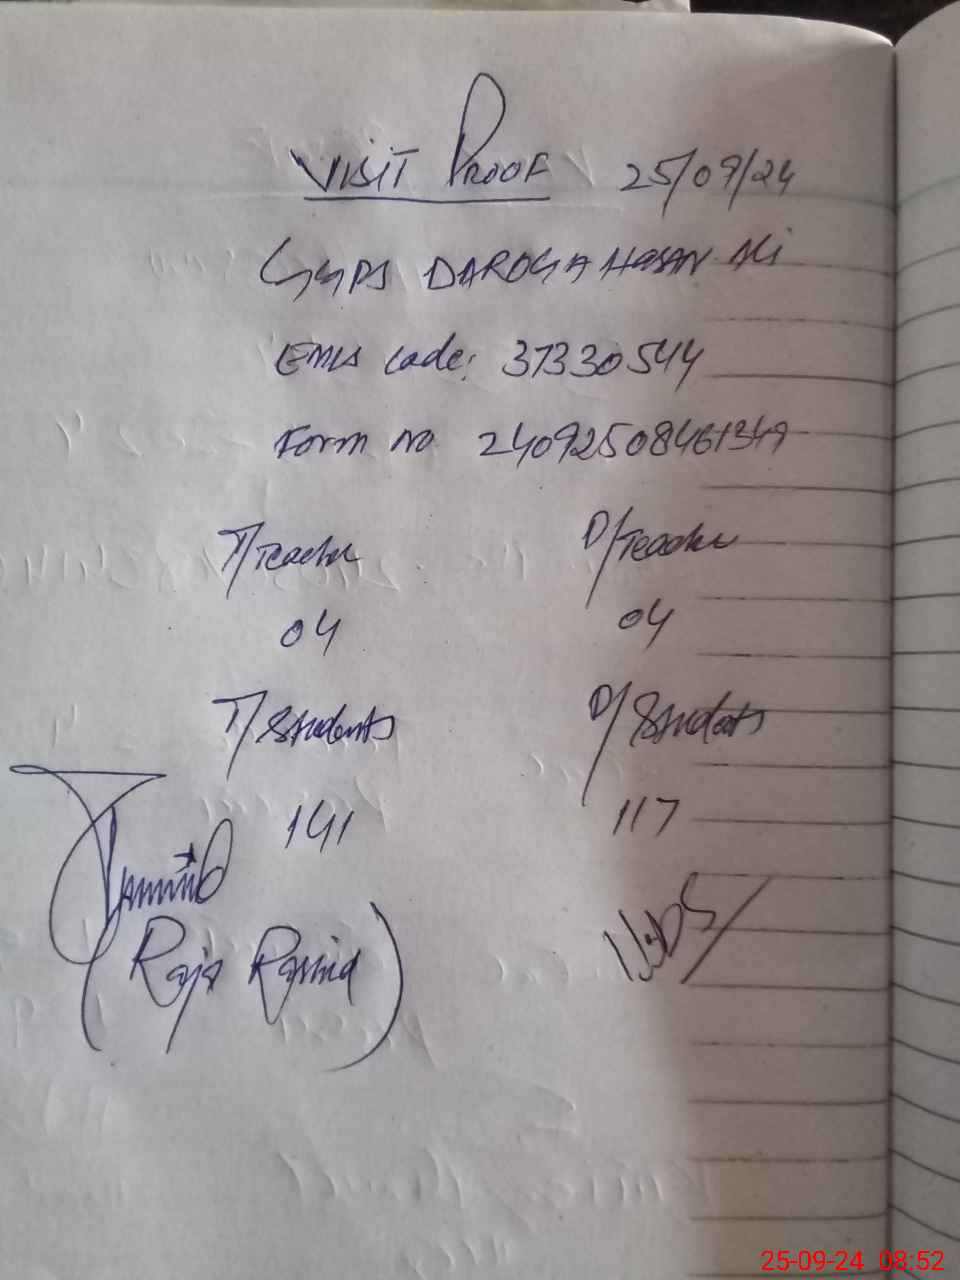 VISIT PROOF 25/09/24
GGPS DAROGHA HASAN Ali
EMIS code: 37330544
Form no 24092508461349
T/Teacher D/Teacher
04 04
T/Students D/Students
141 117
(Raja Rashid)
25-09-24 08:52